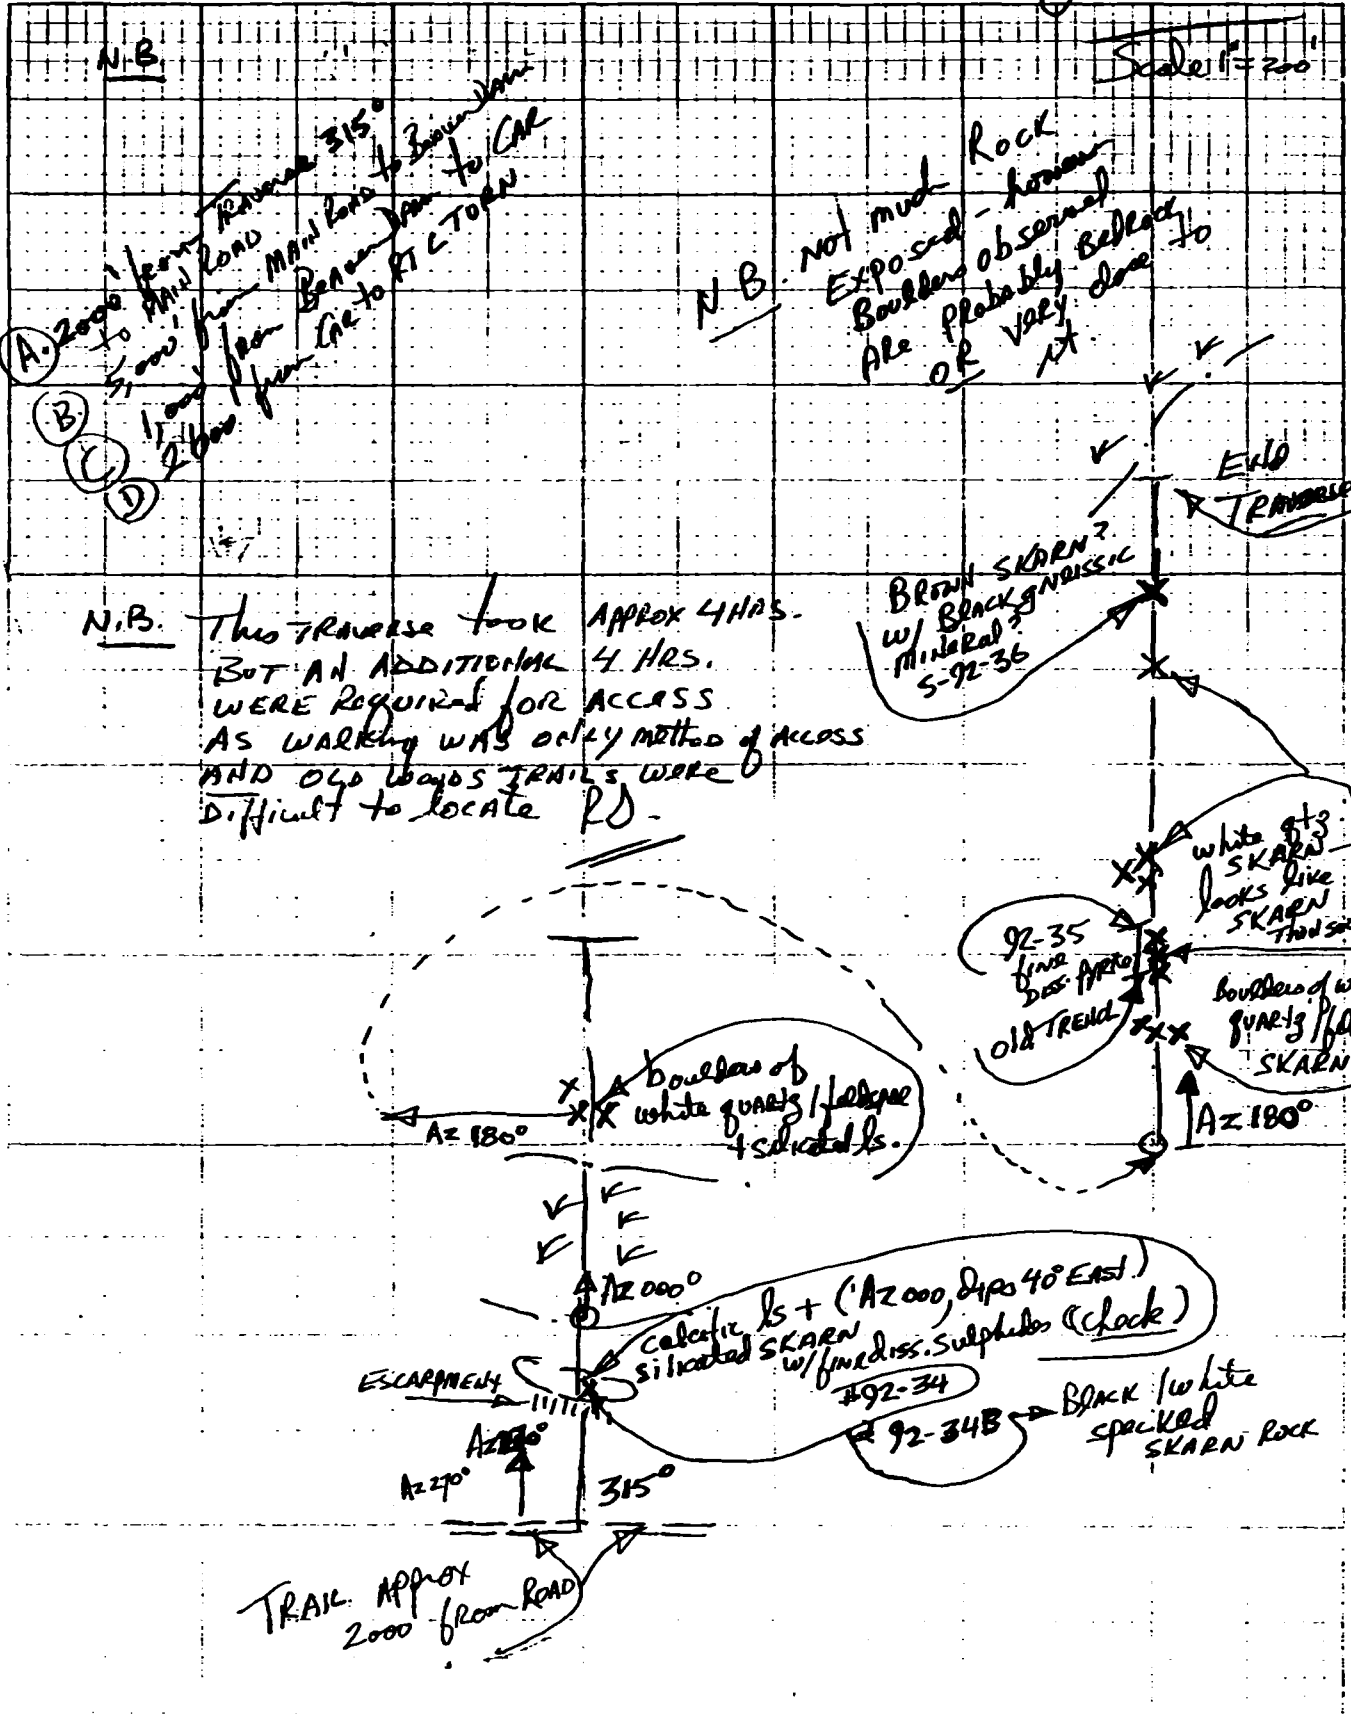 N.B
Scale 1"=200'
A. 2000' from Traverse 315°
to MAIN ROAD
B. 5,000' from MAIN ROAD to Beaver Dam
C 1,000' from Beaver Dam to CAR
D 2,600' from CAR to RT TURN
N.B. Not much Rock
Exposed - however
Boulders observed
ARE Probably Bedrock
OR very close to
it.
END
TRAVERSE
BROWN SKARN?
w/ BLACK gneissic
MINERAL?
S-92-36
N.B. This TRAVERSE took APPROX 4 HRS.
BUT AN ADDITIONAL 4 HRS.
WERE REQUIRED for ACCESS
AS WALKING WAS ONLY METHOD of ACCESS
AND OLD WOODS TRAILS WERE
Difficult to locate RD.
white qtz
SKARN
looks like
SKARN
92-35
fine
DISS. PYRITE
old TREND
Boulders of
quartz /
SKARN
Az 180°
boulders of
white quartz / feldspar
+ silicated ls.
Az 180°
Az 000°
calcitic ls + (Az 000, dips 40° EAST)
silicated SKARN
w/ fine diss. sulphides (check)
#92-34
92-34B
BLACK / white
specked
SKARN ROCK
ESCARPMENT
Az 270°
315°
TRAIL Approx
2000 from ROAD